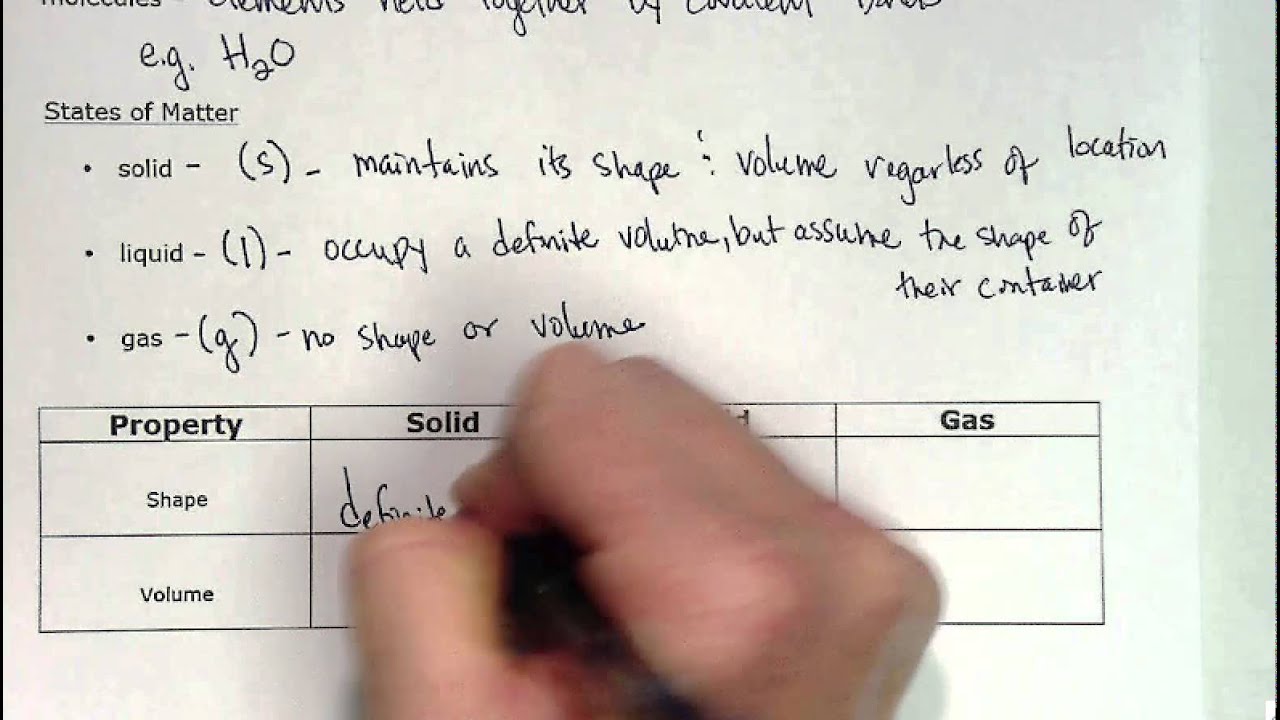 molecules - elements held together by covalent bonds
e.g. H₂O
States of Matter
• solid - (s) - maintains its shape : volume regarless of location
• liquid - (l) - occupy a definite volume, but assume the shape of
their container
• gas - (g) - no shape or volume
Property Solid Gas
Shape definite
Volume